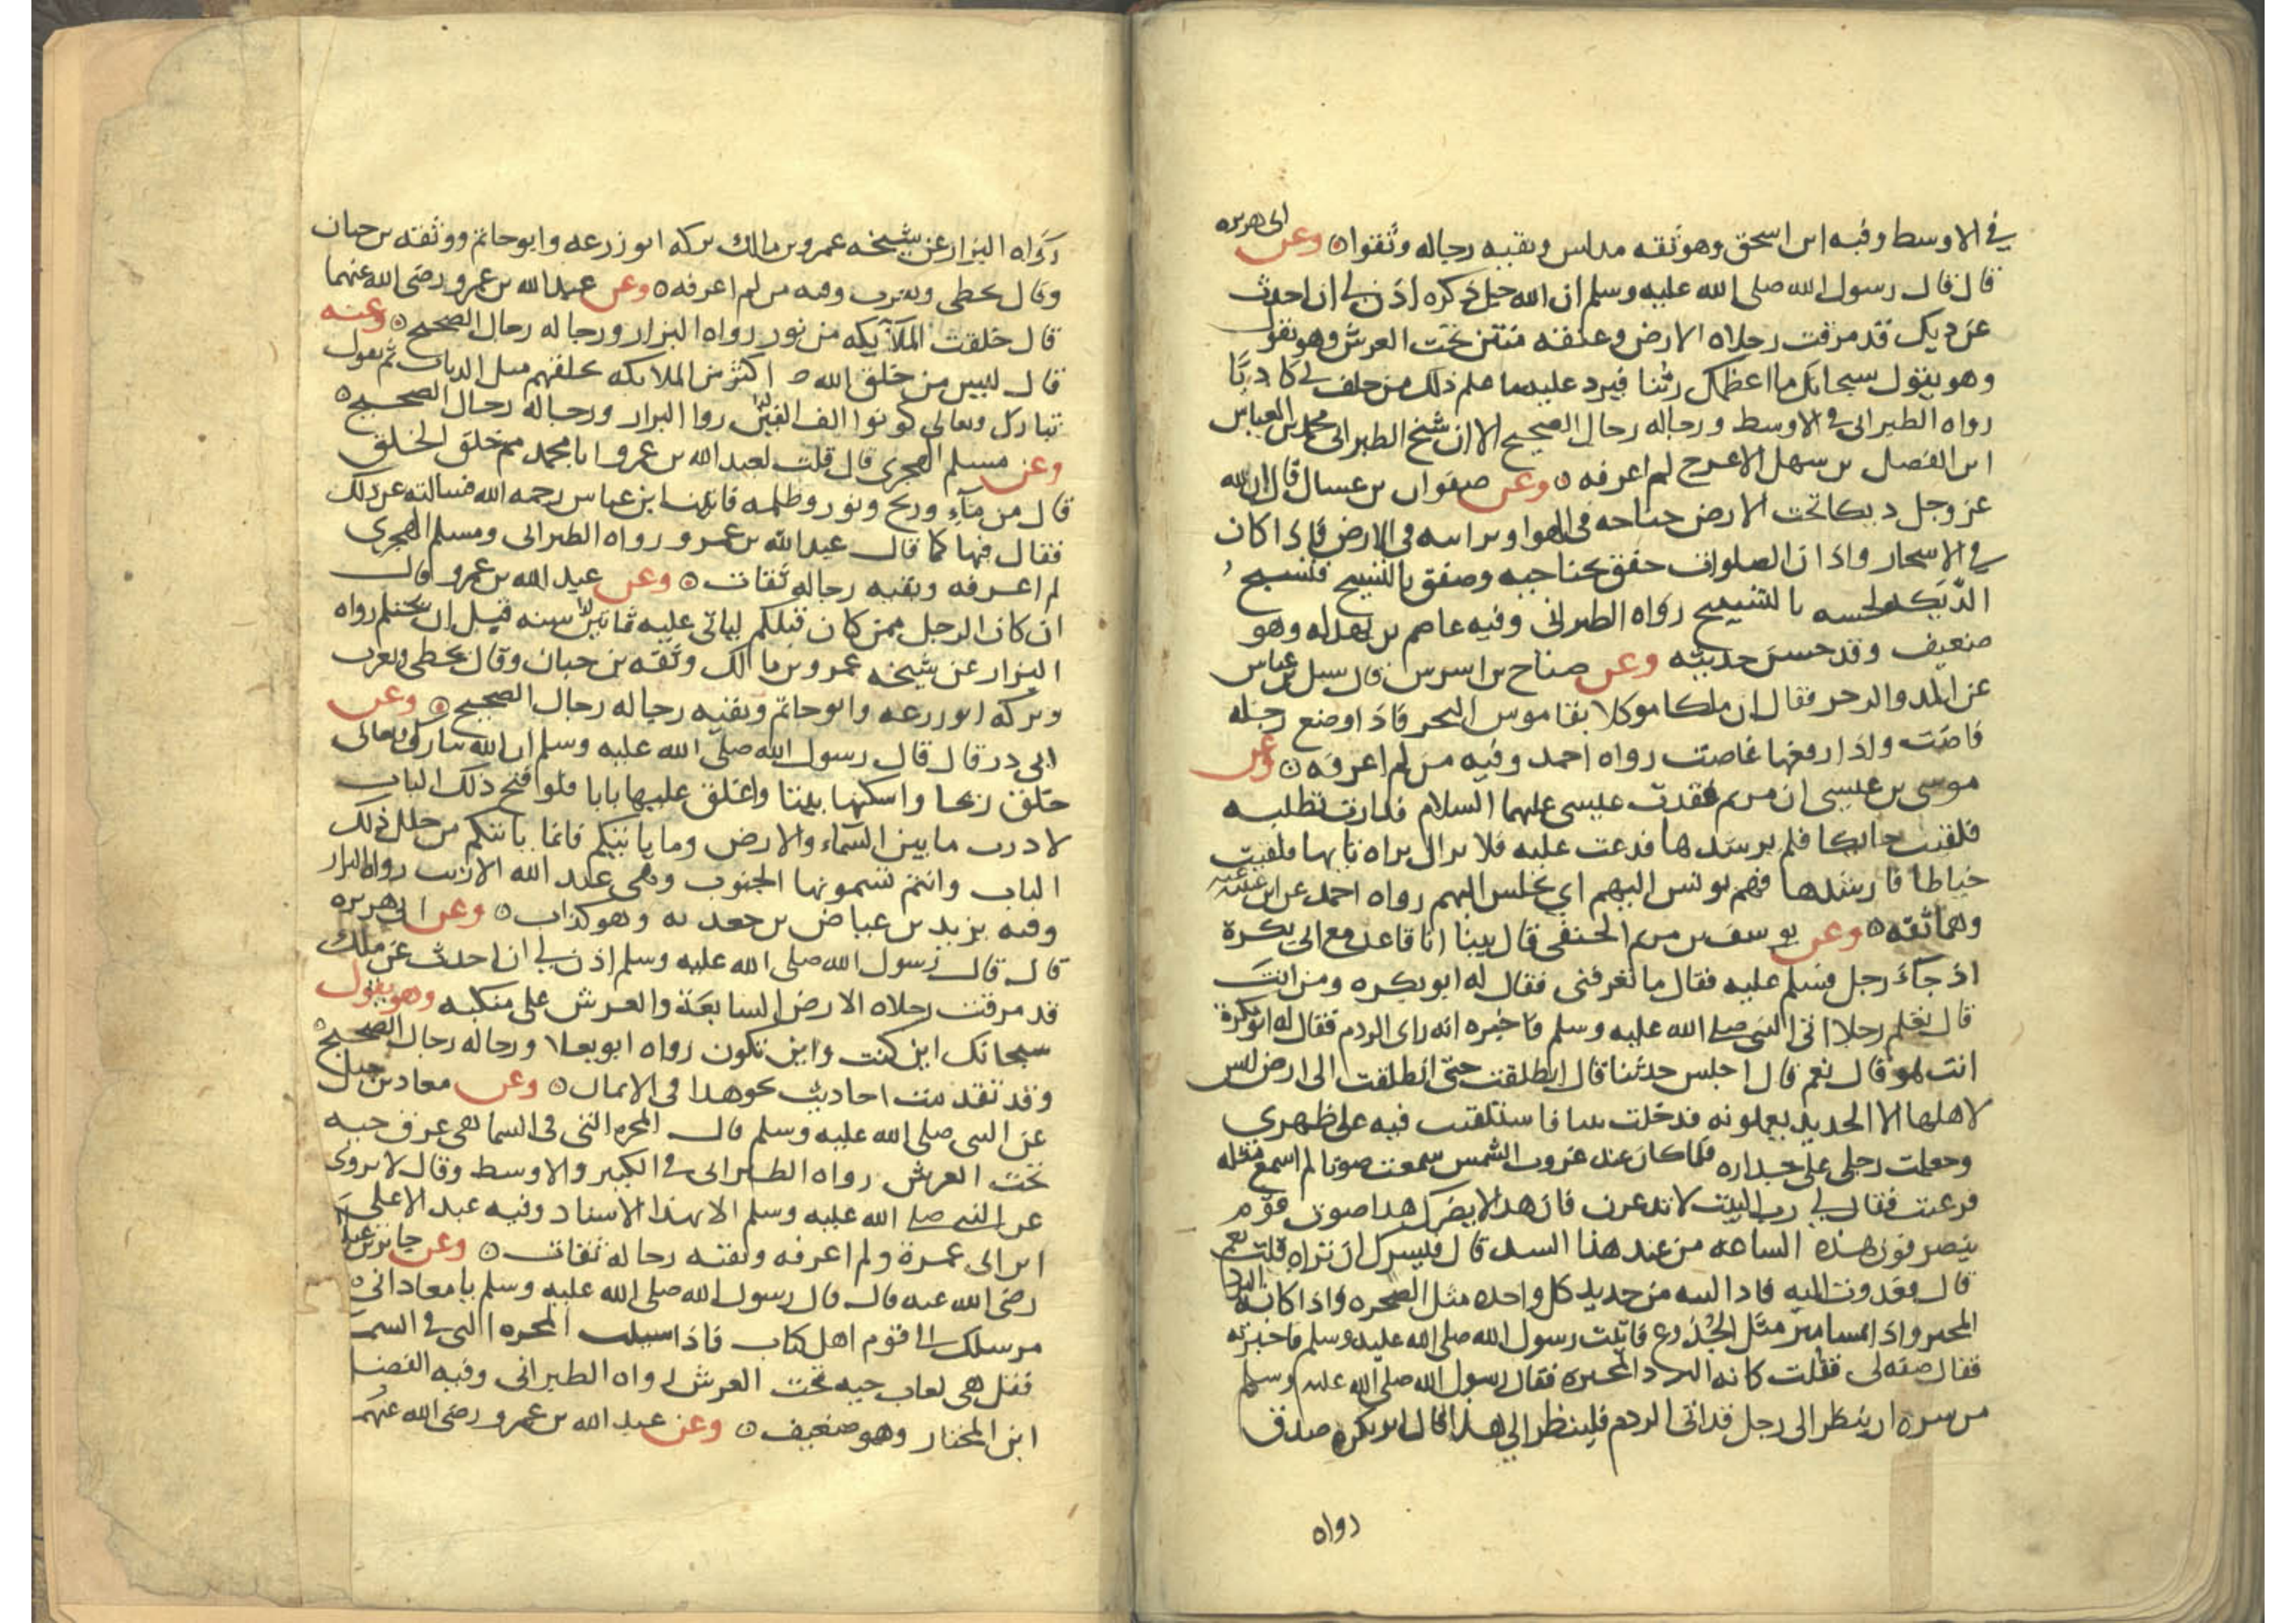 في الاوسط وفيه ابن اسحق وهو ثقه مدلس وبقيه رجاله وثقوا ۞ وعن ابى هريره
قال قال رسول الله صلى الله عليه وسلم ان الله جل ذكره اذن لي ان احدث
عن ديك قد مرقت رجلاه الارض وعنقه مثنى تحت العرش وهو يقول
وهو يقول سبحانك ما اعظمك ربنا فيرد عليه ما علم ذلك من حلف بي كاذبا
رواه الطبرانى في الاوسط ورجاله رجال الصحيح الا ان شيخ الطبرانى محمد بن العباس
ابن الفضل بن سهل الاعرج لم اعرفه ۞ وعن صفوان بن عسال قال ان لله
عز وجل ديكا تحت الارض جناحه فى الهوا وبراسه فى الارض فاذا كان
في الاسحار واذان الصلوات خفق بجناحيه وصفق بالتسبيح فتسبح
الديكه بالتسبيح رواه الطبرانى وفيه عاصم بن بهدله وهو
ضعيف وقد حسن حديثه وعن صباح بن اسرس قال سيل بن عباس
عن المد والجزر فقال ان ملكا موكلا بقاموس البحر فاذا وضع رجله
فاضت واذا رفعها غاضت رواه احمد وفيه من لم اعرفه ۞ وعن
موسى بن عيسى ان مريم فقدت عيسى عليهما السلام فدارت تطلبه
فلقيت حايكا فلم يرشدها فدعت عليه فلا يزال يراه تايها فلقيت
خياطا فارشدها فهم يونس اليهم اي يجلس اليهم رواه احمد عن ابن عيينه
وهما ثقه ۞ وعن يوسف بن مريم الحنفى قال بينا انا قاعد مع ابى بكرة
اذ جآء رجل فسلم عليه فقال ما تعرفنى فقال له ابو بكره ومن انت
قال تعلم رجلا اتى النبى صلى الله عليه وسلم فاخبره انه راى الردم فقال له ابو بكرة
انت هو قال نعم قال اجلس حدثنا قال انطلقت حتى انطلقت الى ارض ليس
لاهلها الا الحديد يعملونه فدخلت بيتا فاستلقيت فيه على ظهري
وجعلت رجلى على جداره فلما كان عند غروب الشمس سمعت صوتا لم اسمع مثله
فرعبت فقال لي رب البيت لا تذعرن فان هذا لا يضرك هذا صوت قوم
ينصرفون هذه الساعه من عند هذا السد قال فيسرك ان تراه قلت نعم
قال فغدوت اليه فاذا لبنه من حديد كل واحده مثل الصخره واذا كانه البرد
المحبر واذا مسامير مثل الجذوع فاتيت رسول الله صلى الله عليه وسلم فاخبرته
فقال صفه لى فقلت كانه البرد المحبره فقال رسول الله صلى الله عليه وسلم
من سره ان ينظر الى رجل قد اتى الردم فلينظر الي هذا قال ابو بكره صدق
رواه
رواه البزار عن شيخه عمرو بن مالك تركه ابو زرعه وابو حاتم ووثقه بن حبان
وقال يخطى ويغرب وفيه من لم اعرفه ۞ وعن عبد الله بن عمرو رضى الله عنهما
قال خلقت الملآيكه من نور رواه البزار ورجاله رجال الصحيح ۞ وعنه
قال ليس من خلق الله اكثر من الملايكه يخلقهم مثل الذباب ثم يقول
تبارك وتعالى كونوا الف الفين روا البزار ورجاله رجال الصحيح ۞
وعن مسلم الهجرى قال قلت لعبد الله بن عمرو ابا محمد مم خلق الخلق
قال من مآء وريح ونور وظلمه فاتيت ابن عباس رحمه الله فسالته عن ذلك
فقال فيها كما قال عبد الله بن عمرو رواه الطبرانى ومسلم الهجرى
لم اعرفه وبقيه رجاله ثقات ۞ وعن عبد الله بن عمرو قال
ان كان الرجل ممن كان قبلكم لياتى عليه ثمانين سنه قبل ان يحتلم رواه
البزار عن شيخه عمرو بن مالك وثقه بن حبان وقال يخطى ويغرب
وتركه ابو زرعه وابو حاتم وبقيه رجاله رجال الصحيح ۞ وعن
ابى ذر قال قال رسول الله صلى الله عليه وسلم ان الله تبارك وتعالى
خلق ريحا واسكنها بيتا واغلق عليها بابا فلو فتح ذلك الباب
لاذرت ما بين السمآء والارض وما ياتيكم فانما ياتيكم من خلل ذلك
الباب وانتم تسمونها الجنوب وهى عند الله الازيب رواه البزار
وفيه يزيد بن عياض بن جعدبه وهو كذاب ۞ وعن ابى هريره
قال قال رسول الله صلى الله عليه وسلم اذن لي ان احدث عن ملك
قد مرقت رجلاه الارض السابعة والعرش على منكبه وهو يقول
سبحانك اين كنت واين تكون رواه ابو يعلا ورجاله رجال الصحيح
وقد تقدمت احاديث نحو هذا فى الايمان ۞ وعن معاذ بن جبل
عن النبى صلى الله عليه وسلم قال المجره التى فى السما هى عرق حيه
تحت العرش رواه الطبرانى فى الكبير والاوسط وقال لا يروى
عن النبى صلى الله عليه وسلم الا بهذا الاسناد وفيه عبد الاعلى
ابن ابى عمرة ولم اعرفه وبقيه رجاله ثقات ۞ وعن جابر بن عبد الله
رضى الله عنه قال قال رسول الله صلى الله عليه وسلم يا معاذ انى
مرسلك الى قوم اهل كتاب فاذا سيلت المجره التى فى السما
فقل هى لعاب حيه تحت العرش رواه الطبرانى وفيه الفضل
ابن المختار وهو ضعيف ۞ وعن عبد الله بن عمرو رضى الله عنهم